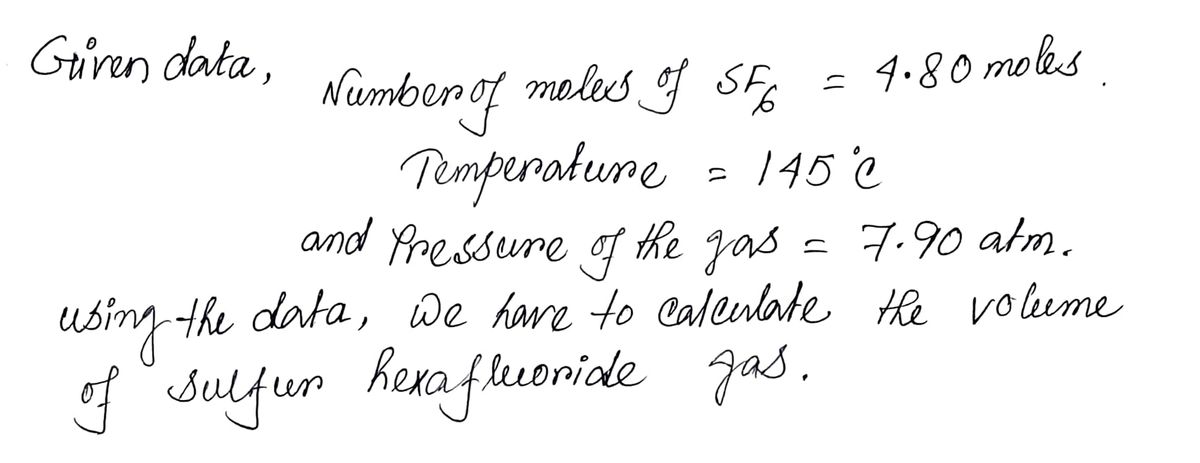 Given data,
Number of moles of SF₆ = 4.80 moles.
Temperature = 145°C
and Pressure of the gas = 7.90 atm.
using the data, we have to calculate the volume
of sulfur hexafluoride gas.